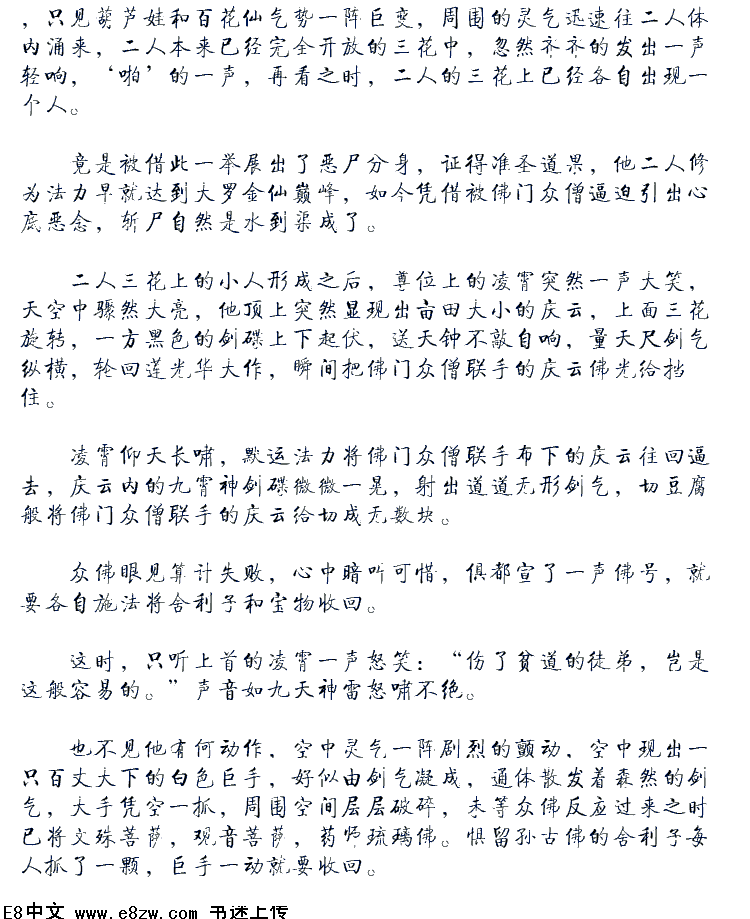 ，只见葫芦娃和百花仙气势一阵巨变，周围的灵气迅速往二人体
内涌来，二人本来已经完全开放的三花中，忽然齐齐的发出一声
轻响，‘啪’的一声，再看之时，二人的三花上已经各自出现一
个人。
竟是被借此一举展出了恶尸分身，证得准圣道果，他二人修
为法力早就达到大罗金仙巅峰，如今凭借被佛门众僧逼迫引出心
底恶念，斩尸自然是水到渠成了。
二人三花上的小人形成之后，尊位上的凌霄突然一声大笑，
天空中骤然大亮，他顶上突然显现出亩田大小的庆云，上面三花
旋转，一方黑色的剑碟上下起伏，送天钟不敲自响，量天尺剑气
纵横，轮回莲光华大作，瞬间把佛门众僧联手的庆云佛光给挡
住。
凌霄仰天长啸，默运法力将佛门众僧联手布下的庆云往回逼
去，庆云内的九霄神剑碟微微一晃，射出道道无形剑气，切豆腐
般将佛门众僧联手的庆云给切成无数块。
众佛眼见算计失败，心中暗听可惜，俱都宣了一声佛号，就
要各自施法将舍利子和宝物收回。
这时，只听上首的凌霄一声怒笑：“伤了贫道的徒弟，岂是
这般容易的。”声音如九天神雷怒啸不绝。
也不见他有何动作，空中灵气一阵剧烈的颤动，空中现出一
只百丈大下的白色巨手，好似由剑气凝成，通体散发着森然的剑
气，大手凭空一抓，周围空间层层破碎，未等众佛反应过来之时
已将文殊菩萨，观音菩萨，药师琉璃佛。惧留孙古佛的舍利子每
人抓了一颗，巨手一动就要收回。
E8中文 www.e8zw.com 书迷上传